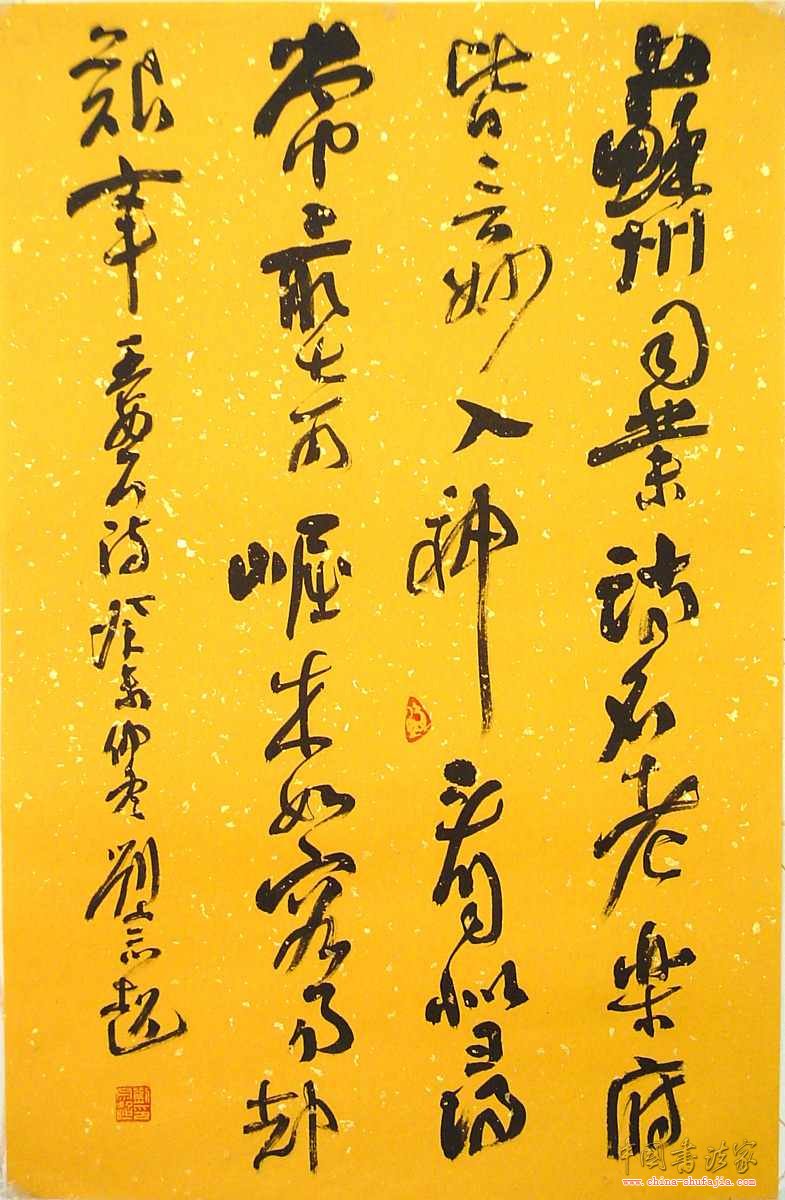 蘇州司業詩名老樂府
皆言妙入神看似尋
常最奇崛成如容易却
艱辛 王安石詩 癸未仲冬 劉宗超
中国书法家
www.china-shufajia.com